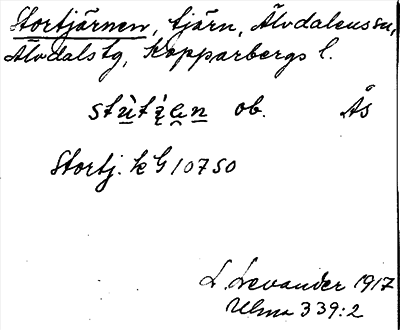 Stortjärnen, tjärn, Älvdalens sn,
Älvdals tg, Kopparbergs l.
ob. Ås
Stortj. k G 10750
L. Levander 1917
Ulma 339:2